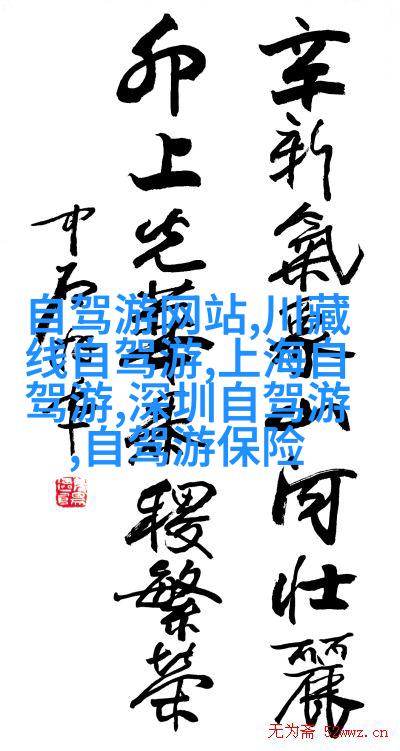 辛新氣山河壯麗
卯上光華稷繁榮
中石
自驾游网站,川藏
线自驾游,上海自
驾游,深圳自驾游
,自驾游保险
无为斋 52wwz.cn